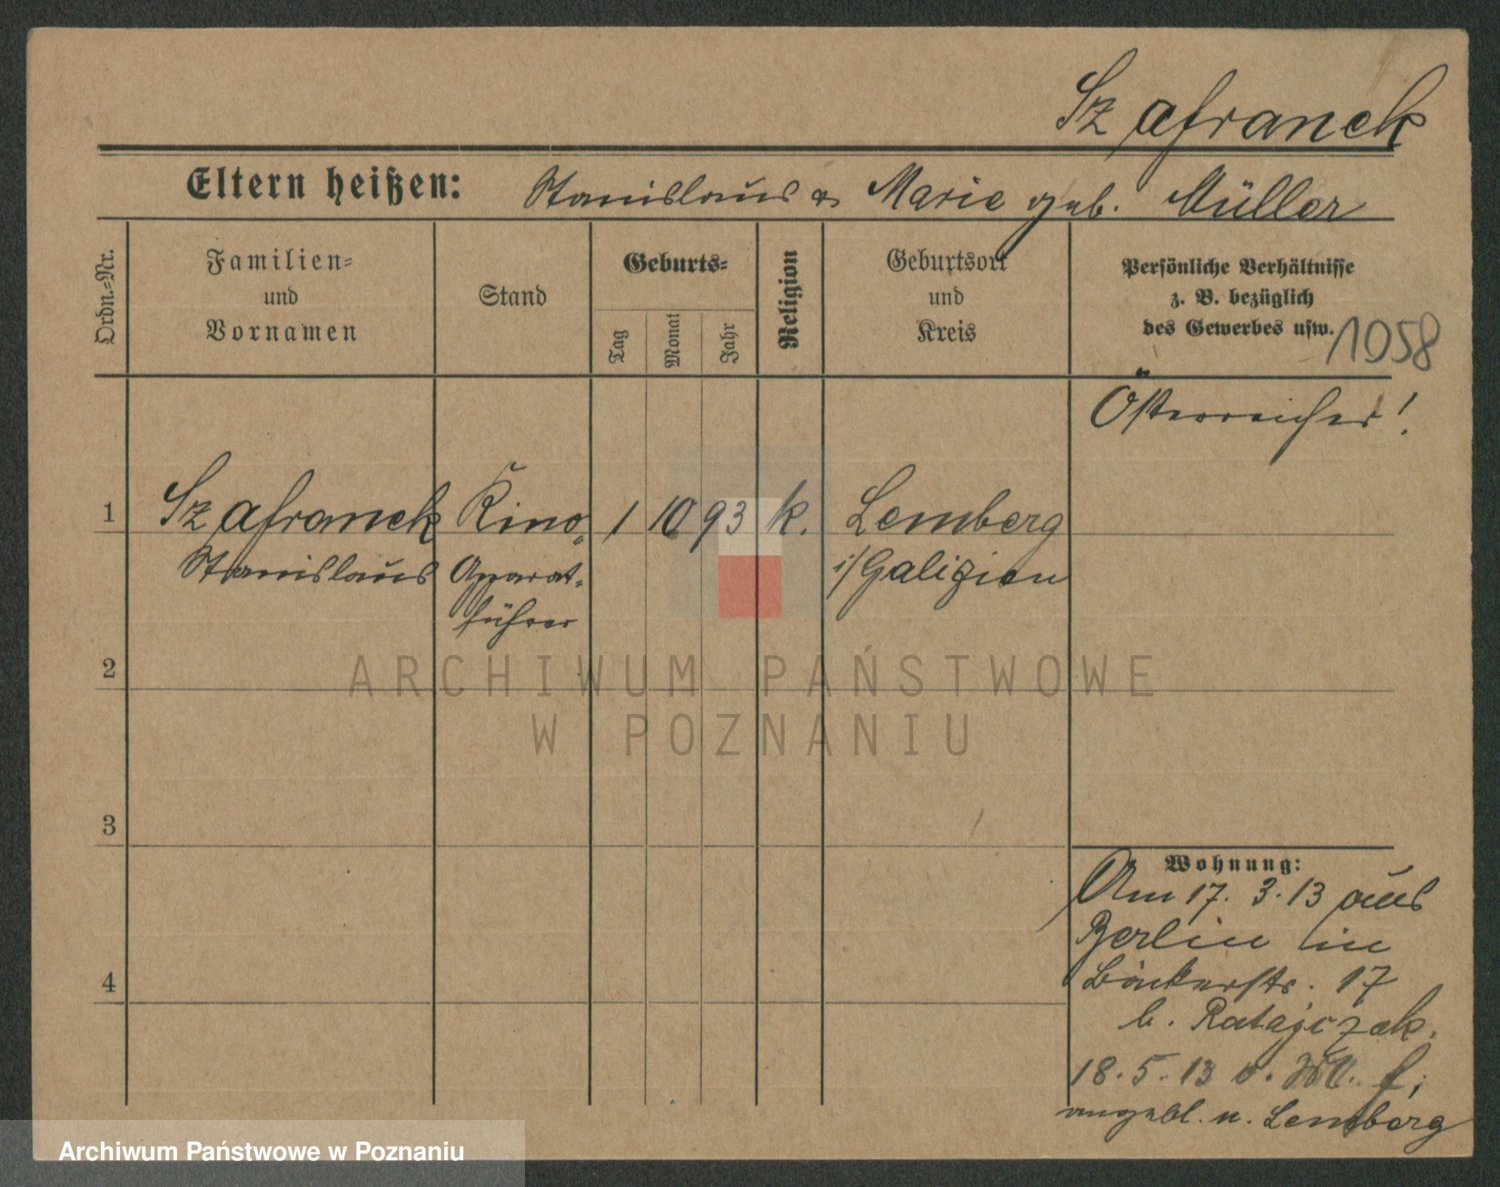 Szafranek
Eltern heißen: Stanislaus & Marie geb. Müller
Ordn.=Nr.
Familien=
und
Vornamen
Stand
Geburts=
Tag
Monat
Jahr
Religion
Geburtsort
und
Kreis
Persönliche Verhältnisse
z. B. bezüglich
des Gewerbes usw.
1058
Österreicher!
1 Szafranek Kino= 1 10 93 k. Lemberg
Stanislaus Apparat= i/Galizien
führer
2
3
4
Wohnung:
Am 17. 3. 13 aus
Berlin in
Bäckerstr. 17
b. Ratajczak.
18. 5. 13
angebl. n. Lemberg
ARCHIWUM PAŃSTWOWE
W POZNANIU
Archiwum Państwowe w Poznaniu